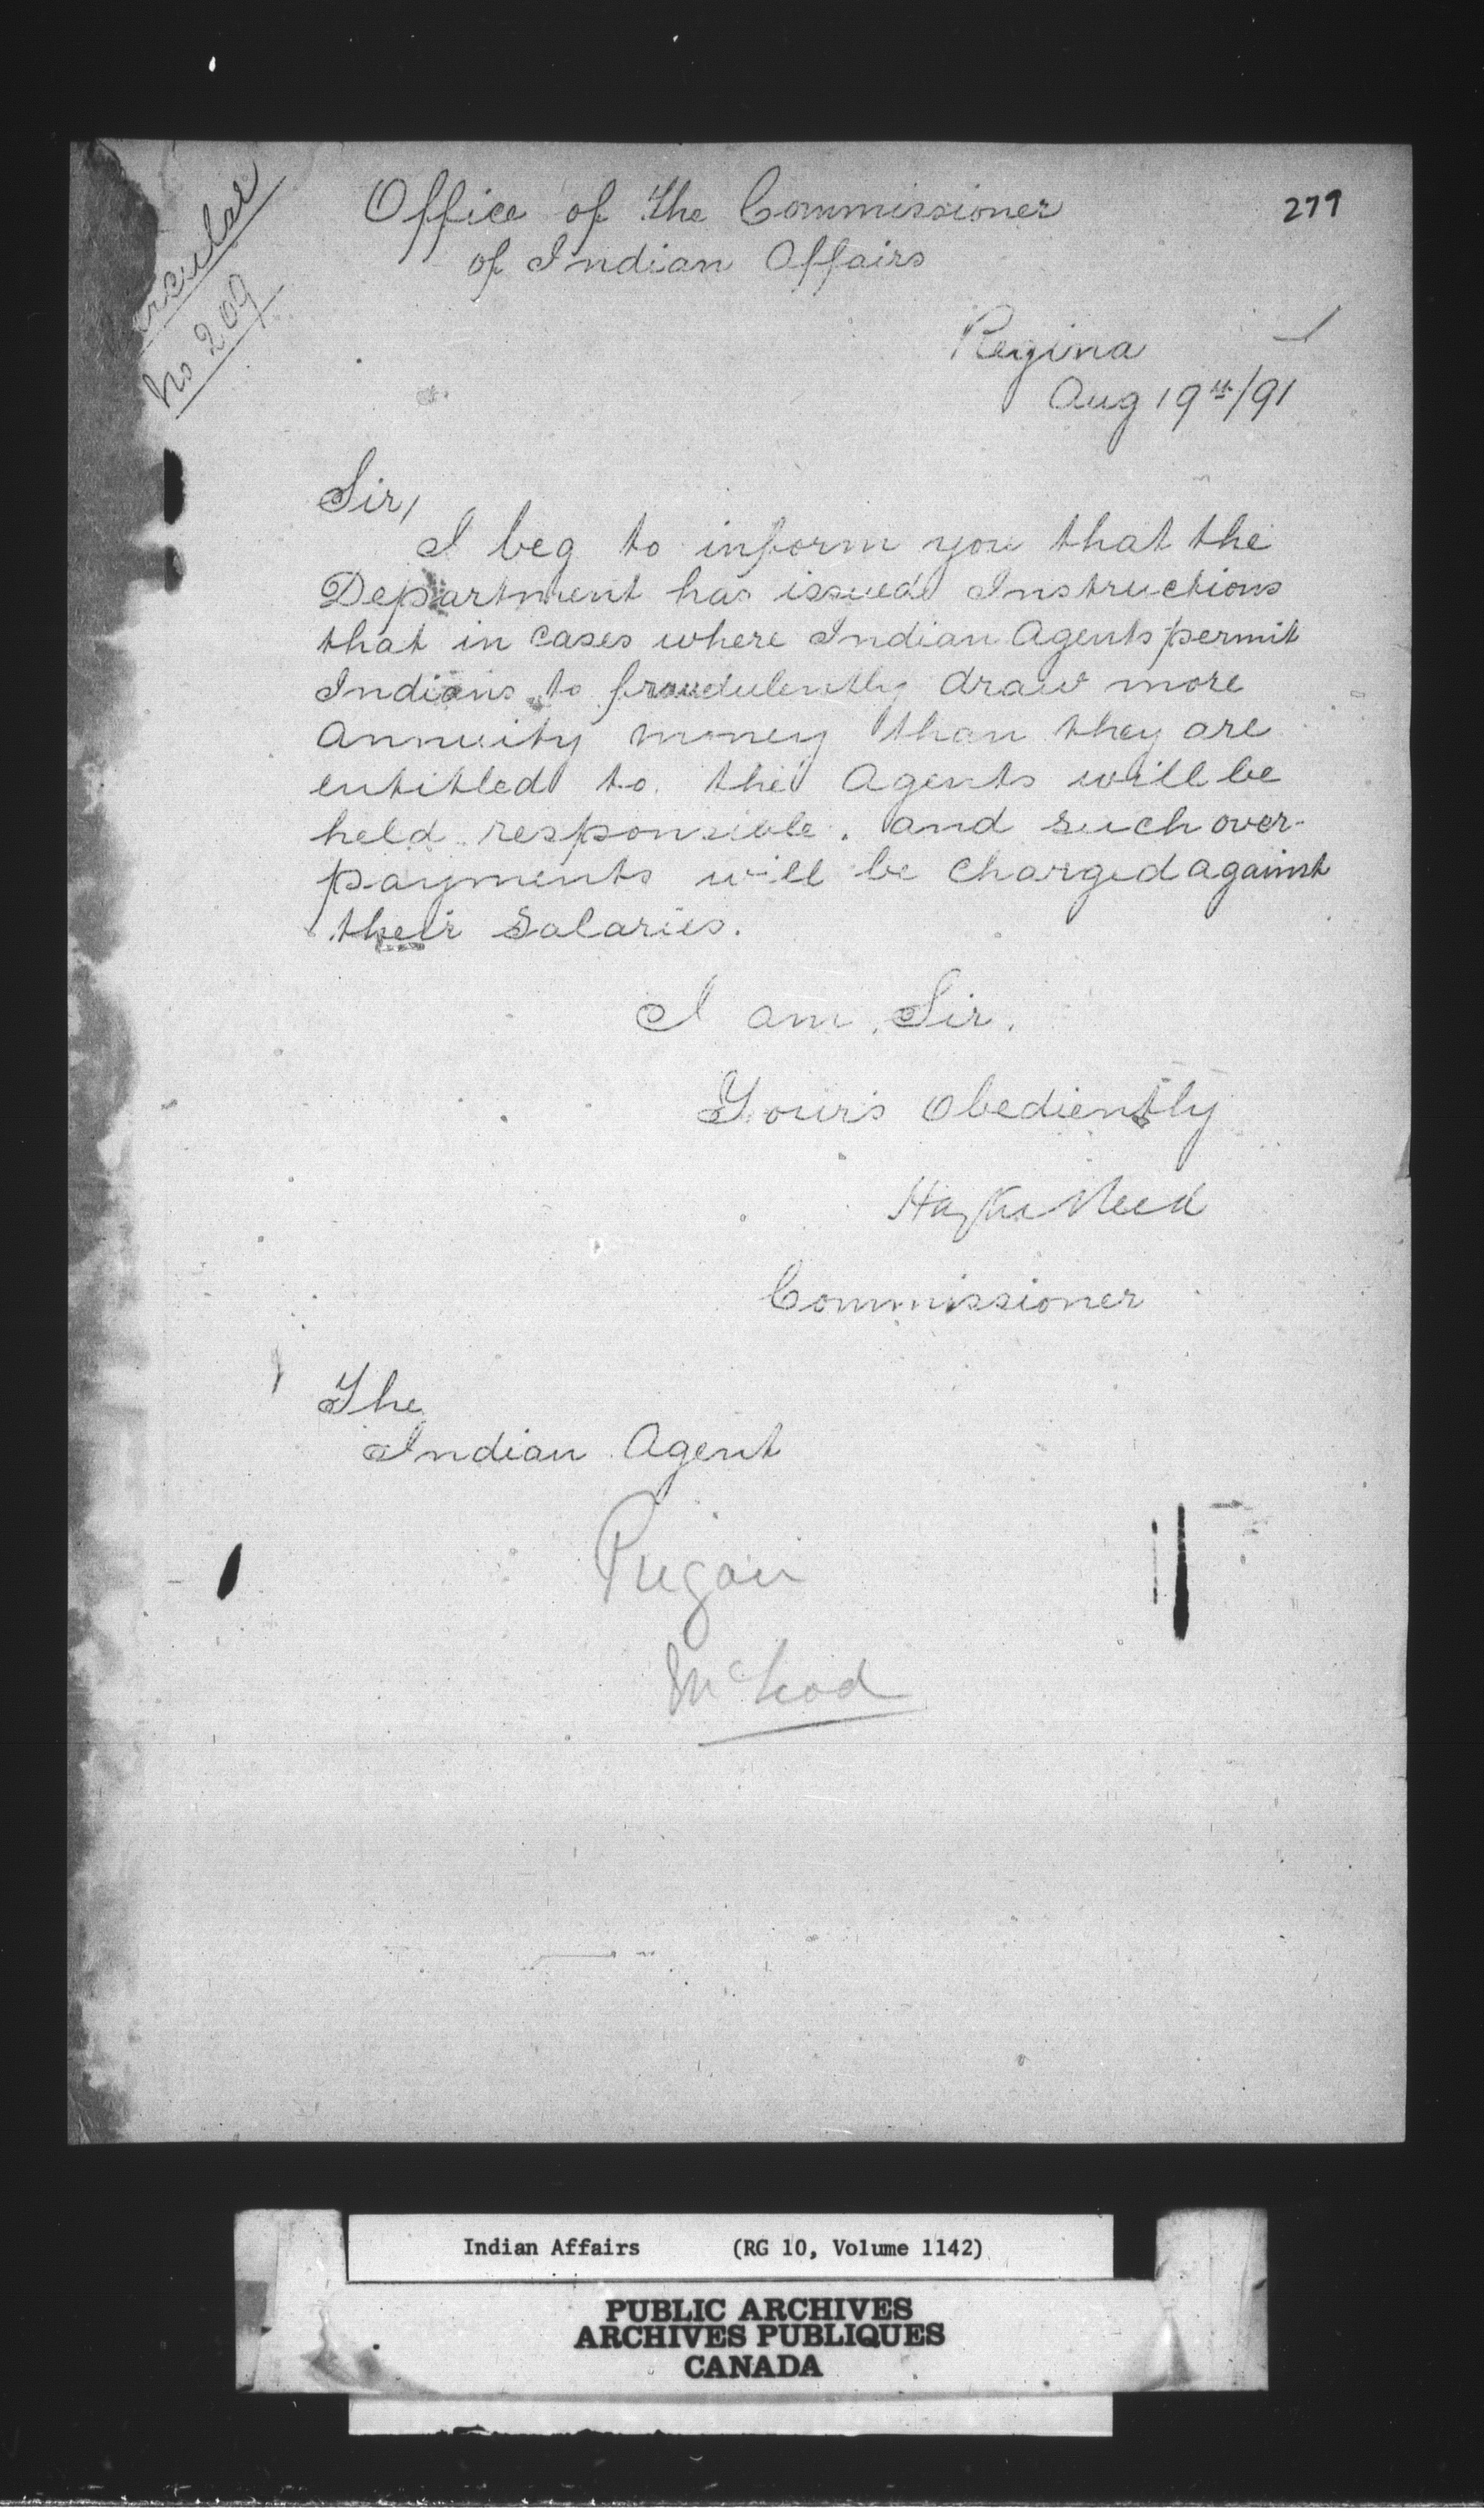 Circular
No 209
279
Office of the Commissioner
of Indian Affairs
Regina
Aug 19th/91
Sir,
I beg to inform you that the
Department has issued Instructions
that in cases where Indian Agents permit
Indians to fraudulently draw more
Annuity money than they are
entitled to the Agents will be
held responsible. and such over-
payments will be charged against
their Salaries.
I am, Sir.
Your's Obediently
Hayter Reed
Commissioner
The
Indian Agent
Piegan
McLeod
Indian Affairs (RG 10, Volume 1142)
PUBLIC ARCHIVES
ARCHIVES PUBLIQUES
CANADA